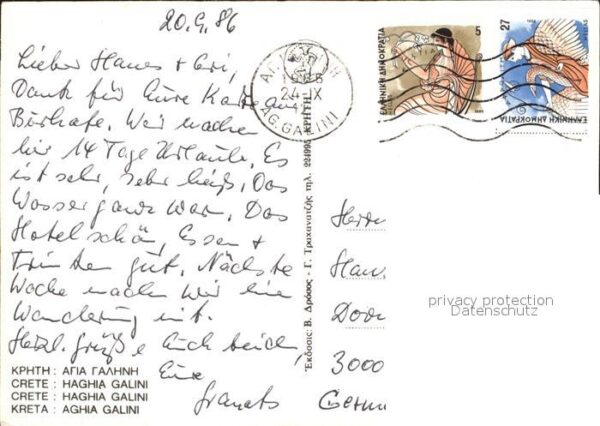 20.9.86
Lieber Hannes + Evi,
Dank für Eure Karte aus
Wir machen
hier 14 Tage Urlaub. Es
ist sehr, sehr heiß. Das
Wasser ganz warm. Das
Hotel schön, Essen +
Trinken gut. Nächste
Woche machen wir eine
Wanderung mit.
Herzl. Grüße Euch beiden,
Eure
ΚΡΗΤΗ : ΑΓΙΑ ΓΑΛΗΝΗ
CRETE : HAGHIA GALINI
CRETE : HAGHIA GALINI
KRETA : AGHIA GALINI
Εκδοσις: Β. Δρόσος - Γ. Τραχανατζής τηλ. 224995 ΚΡΗΤΗ
24 IX
AG.GALINI
5
ΕΛΛΗΝΙΚΗ ΔΗΜΟΚΡΑΤΙΑ
27
ΕΛΛΗΝΙΚΗ ΔΗΜΟΚΡΑΤΙΑ
Herrn
3000
privacy protection
Datenschutz